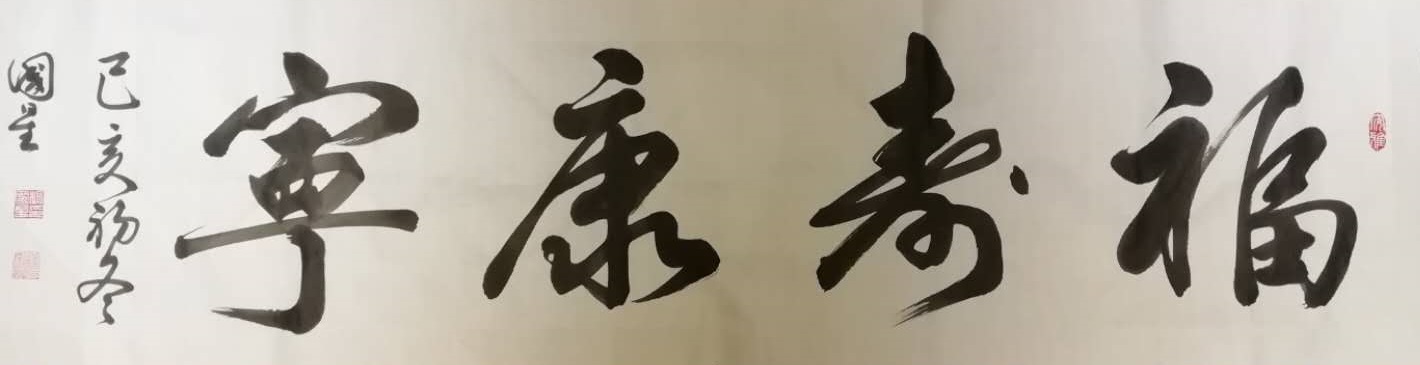 福壽康寧
己亥初冬
國星